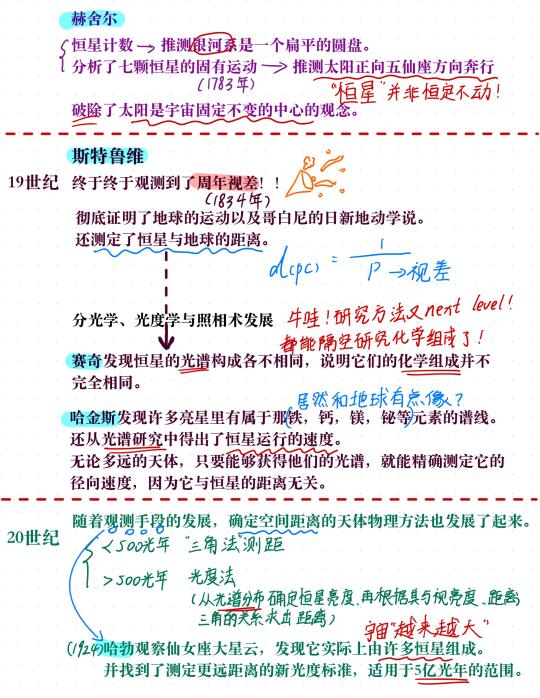 赫舍尔
恒星计数→推测银河系是一个扁平的圆盘。
分析了七颗恒星的固有运动→推测太阳正向五仙座方向奔行
(1783年)
"恒星"并非恒定不动!
破除了太阳是宇宙固定不变的中心的观念。
斯特鲁维
19世纪 终于终于观测到了周年视差!!
(1834年)
彻底证明了地球的运动以及哥白尼的日新地动学说。
还测定了恒星与地球的距离。
d(pc) = 1/P →视差
分光学、光度学与照相术发展
牛哇!研究方法又next level!
都能隔空研究化学组成了!
赛奇发现恒星的光谱构成各不相同,说明它们的化学组成并不
完全相同。
居然和地球有点像?
哈金斯发现许多亮星里有属于那(铁,钙,镁,铋)等元素的谱线。
还从光谱研究中得出了恒星运行的速度。
无论多远的天体,只要能够获得他们的光谱,就能精确测定它的
径向速度,因为它与恒星的距离无关。
20世纪 随着观测手段的发展,确定空间距离的天体物理方法也发展了起来。
<500光年 "三角法"测距
>500光年 光度法
(从光谱分布确定恒星亮度,再根据其与视亮度、距离
三角的关系求出距离)
宇宙"越来越大"
(1924)哈勃观察仙女座大星云,发现它实际上由许多恒星组成。
并找到了测定更远距离的新光度标准,适用于5亿光年的范围。